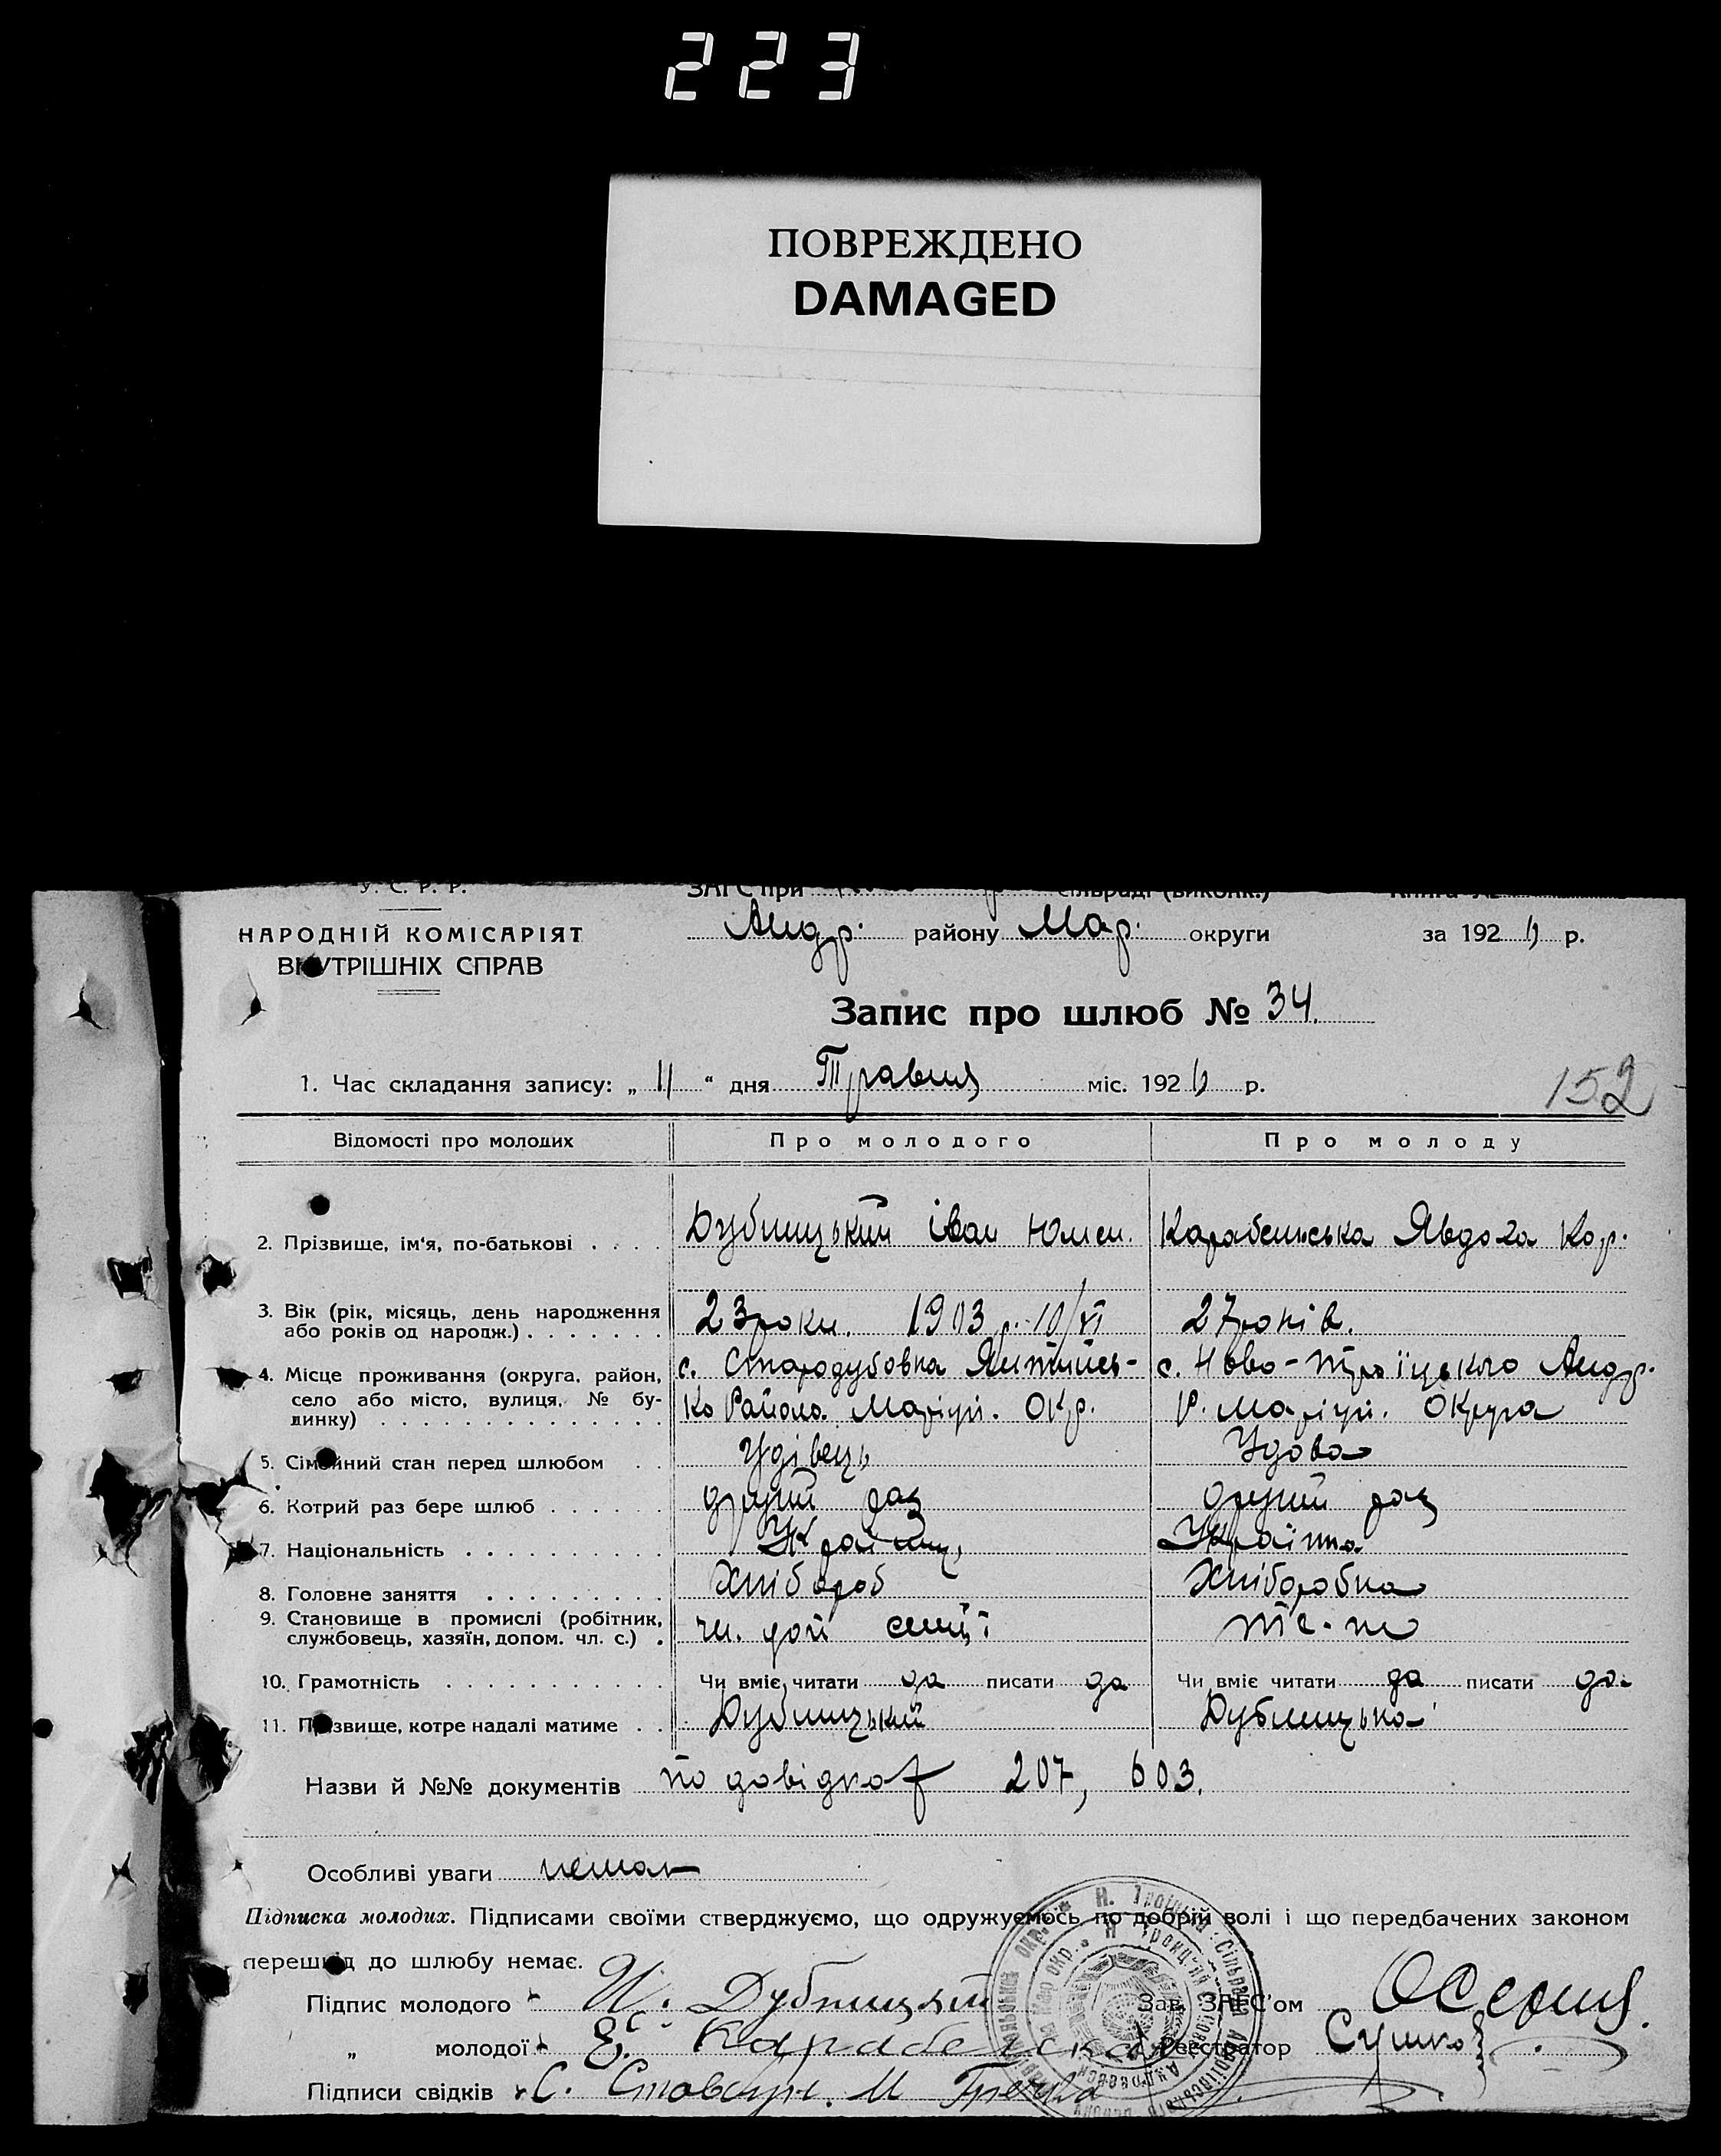 223
ПОВРЕЖДЕНО
DAMAGED
У. С. Р. Р.
ЗАГС при сільраді (виконк.)
НАРОДНІЙ КОМІСАРІЯТ
ВНУТРІШНІХ СПРАВ
Андр. району Мар. округи за 1926 р.
Запис про шлюб № 34.
1. Час складання запису: „ 11 “ дня Травня міс. 1926 р.
152
Відомості про молодих Про молодого Про молоду
2. Прізвище, ім'я, по-батькові . . . . Дубницький Іван Карабенська Явдоха Кор.
3. Вік (рік, місяць, день народження
або років од народж.) . . . . . . . 23 роки. 1903 р. 10/VI 27 років.
4. Місце проживання (округа, район,
село або місто, вулиця, № бу-
динку) . . . . . . . . . . . . .
с. Стародубовка Янтись- с. Ново-Троїцького Андр.
ко Району. Маріуп. Окр. Р. Маріуп. Округа
5. Сімейний стан перед шлюбом . . Удівець Удова
6. Котрий раз бере шлюб . . . . . . другий раз другий раз
7. Національність . . . . . . . . . Українець Українка
8. Головне заняття . . . . . . . . . Хлібороб Хліборобка
9. Становище в промислі (робітник,
службовець, хазяїн, допом. чл. с.) . чл. сем'ї
10. Грамотність . . . . . . . . . . . Чи вміє читати да писати да Чи вміє читати да писати да
11. Прізвище, котре надалі матиме . . Дубницький Дубницька
Назви й №№ документів по довідках 207, 603.
Особливі уваги немає
Підписка молодих. Підписами своїми стверджуємо, що одружуємось по добрій волі і що передбачених законом
перешкод до шлюбу немає.
Підпис молодого И. Дубницкий Зав. ЗАГС'ом
„ молодої Е. Карабенска Реєстратор Сушко
Підписи свідків С.